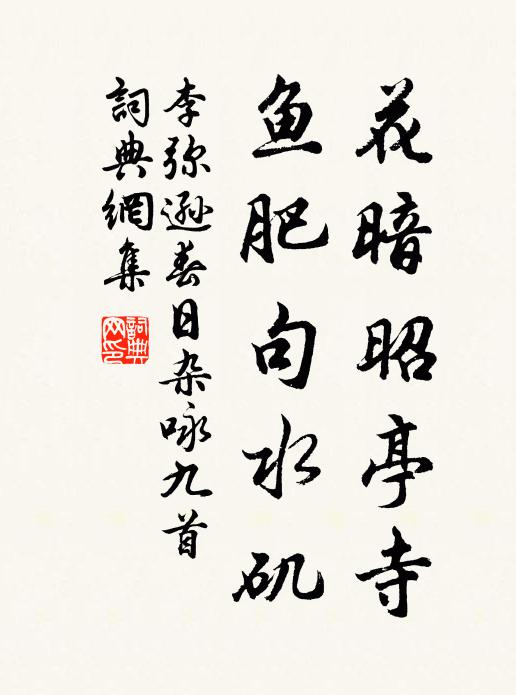 花暗昭亭寺
鱼肥句水矶
李弥逊春日杂咏九首
詞典網集
詞典网印